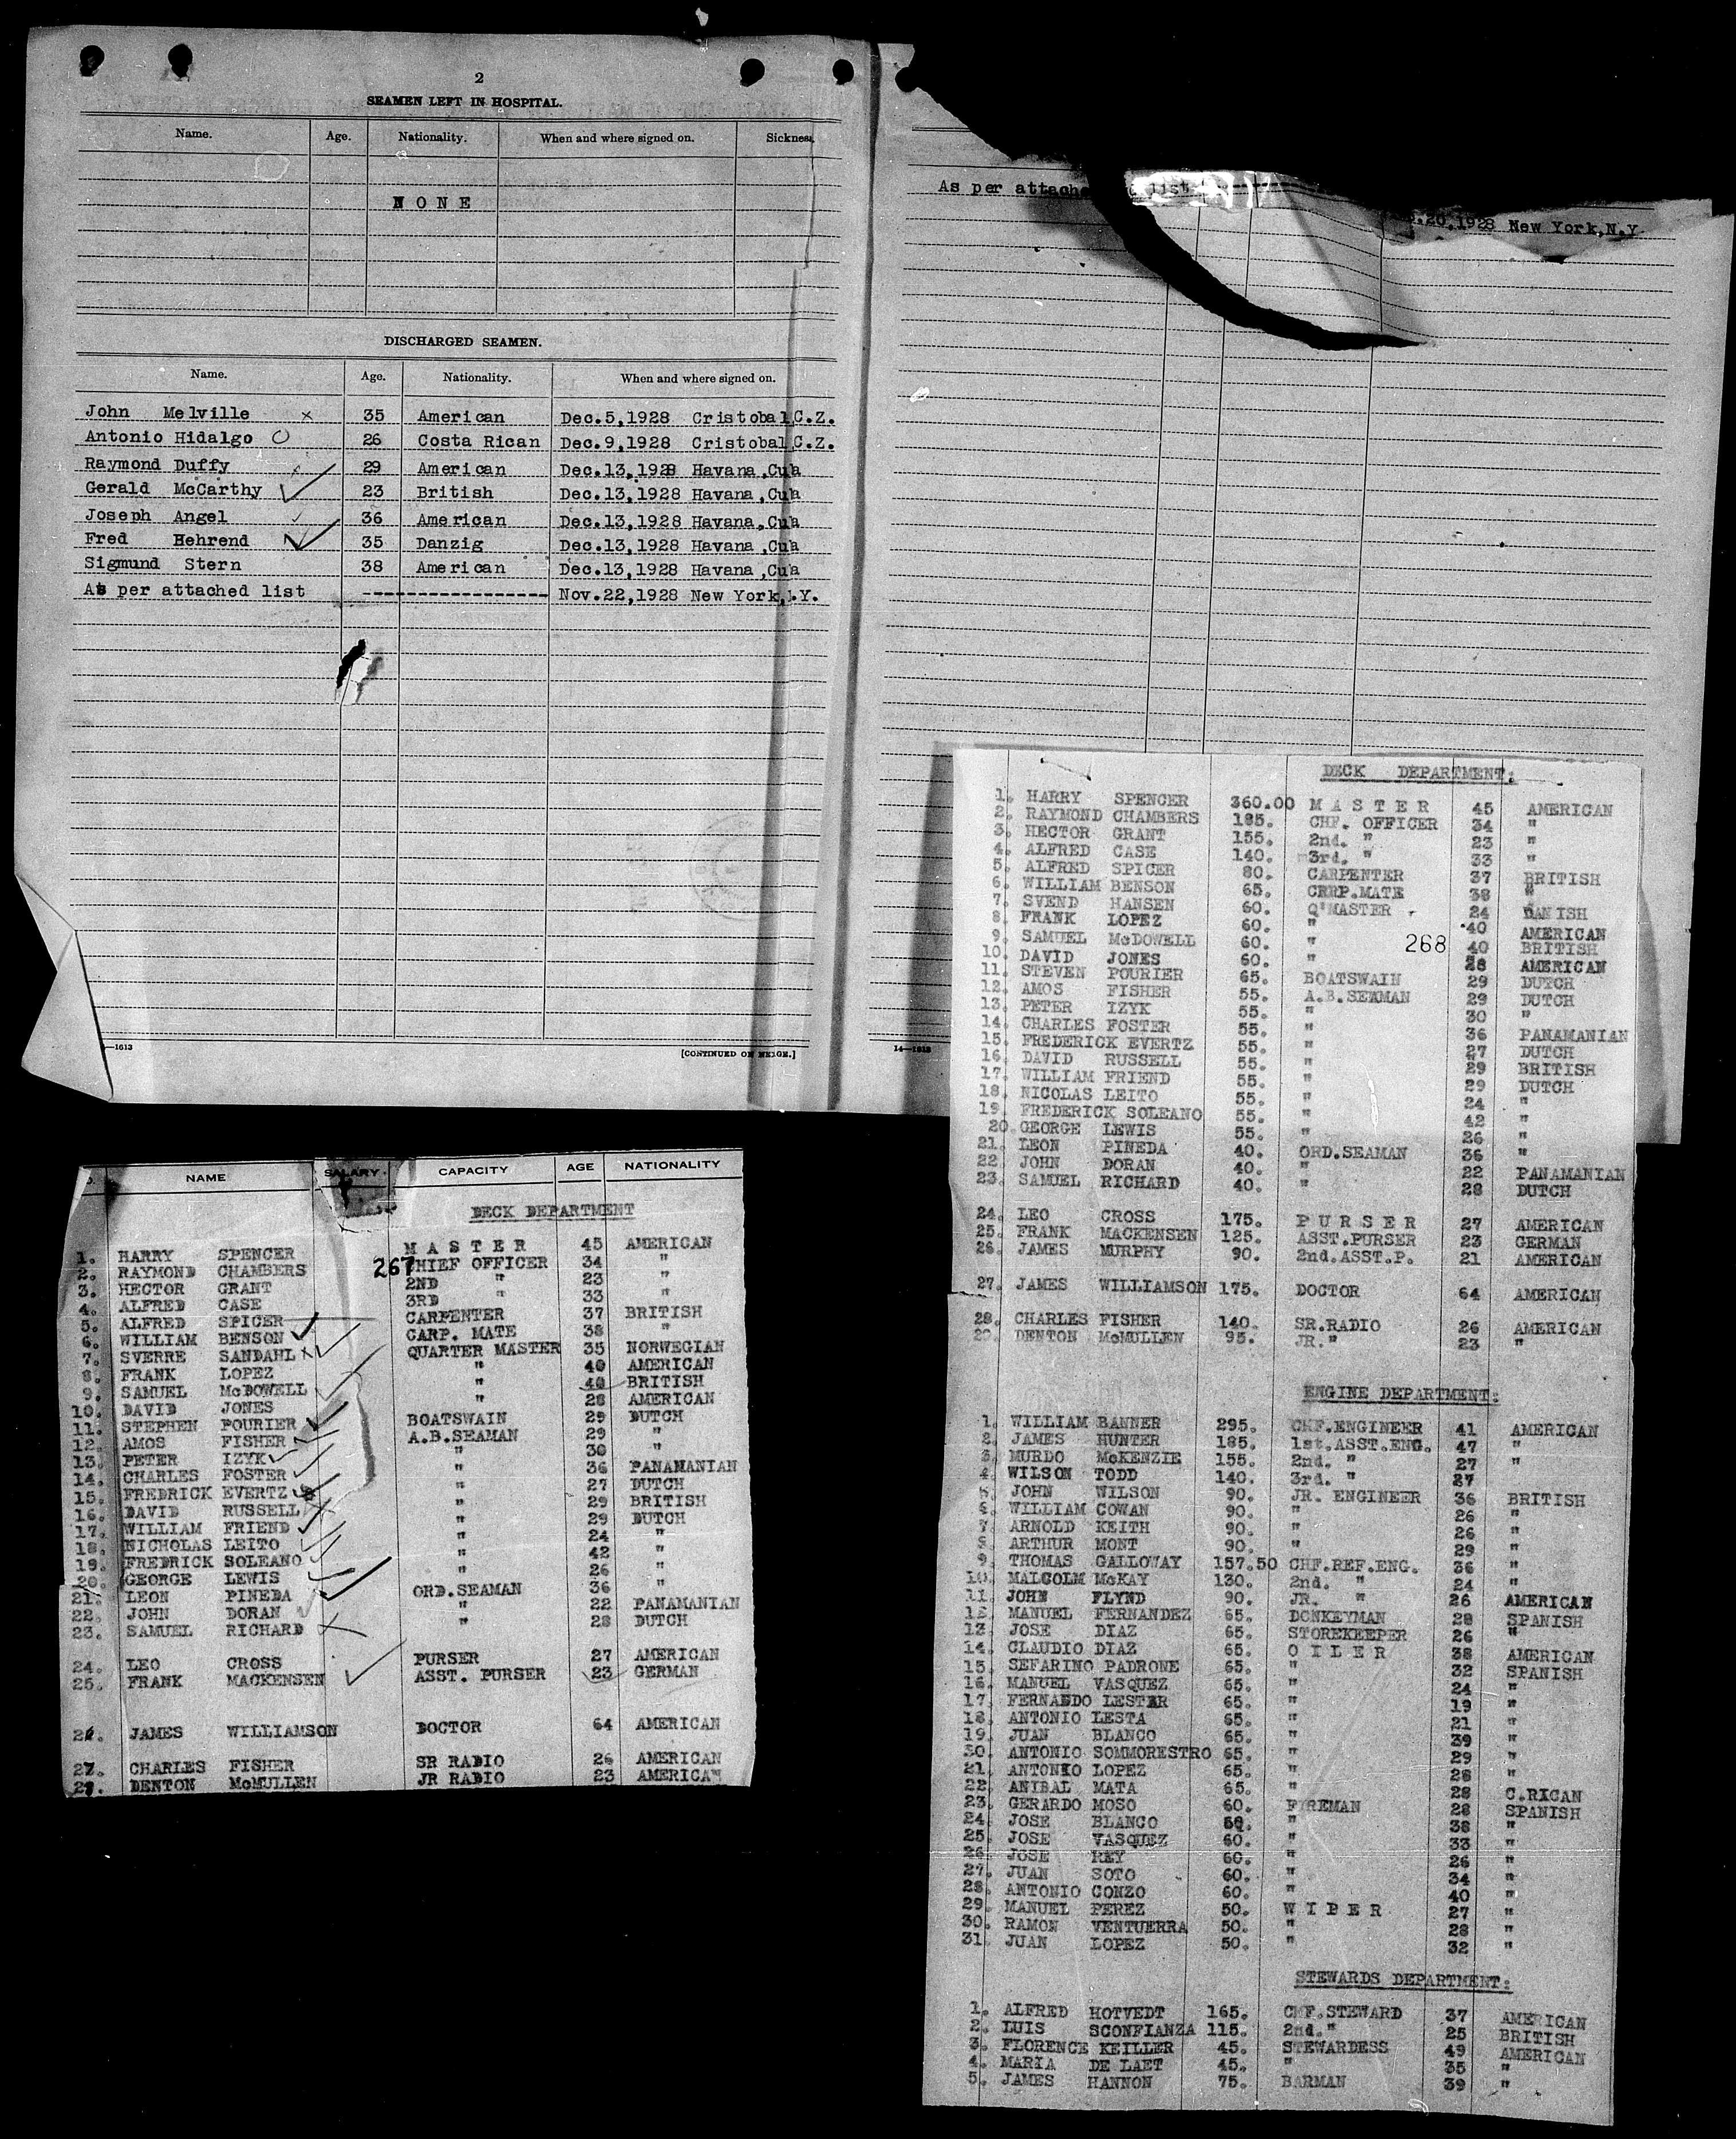 2
SEAMEN LEFT IN HOSPITAL.
Name. Age. Nationality. When and where signed on. Sickness.
NONE
DISCHARGED SEAMEN.
Name. Age. Nationality. When and where signed on.
John Melville x 35 American Dec.5,1928 Cristobal,C.Z.
Antonio Hidalgo O 26 Costa Rican Dec.9,1928 Cristobal,C.Z.
Raymond Duffy 29 American Dec.13,1928 Havana,Cu'a
Gerald McCarthy ✓ 23 British Dec.13,1928 Havana,Cu'a
Joseph Angel ✓ 36 American Dec.13,1928 Havana,Cu'a
Fred Behrend ✓ 35 Danzig Dec.13,1928 Havana,Cu'a
Sigmund Stern 38 American Dec.13,1928 Havana,Cu'a
As per attached list ------------------ Nov.22,1928 New York, .Y.
—1613
[CONTINUED ON
As per attache list
.20,1928 New York,N.Y.
14—1613
NAME SALARY. CAPACITY AGE NATIONALITY
DECK DEPARTMENT
1. HARRY SPENCER MASTER 45 AMERICAN
2. RAYMOND CHAMBERS 267 CHIEF OFFICER 34 "
3. HECTOR GRANT 2ND " 23 "
4. ALFRED CASE 3RD " 33 "
5. ALFRED SPICER CARPENTER 37 BRITISH
6. WILLIAM BENSON CARP. MATE 38 "
7. SVERRE SANDAHL QUARTER MASTER 35 NORWEGIAN
8. FRANK LOPEZ " 40 AMERICAN
9. SAMUEL McDOWELL " 40 BRITISH
10. DAVID JONES " 28 AMERICAN
11. STEPHEN POURIER BOATSWAIN 29 DUTCH
12. AMOS FISHER A.B.SEAMAN 29 "
13. PETER IZYK " 30 "
14. CHARLES FOSTER " 36 PANAMANIAN
15. FREDRICK EVERTZ " 27 DUTCH
16. DAVID RUSSELL " 29 BRITISH
17. WILLIAM FRIEND " 29 DUTCH
18. NICHOLAS LEITO " 24 "
19. FREDRICK SOLEANO " 42 "
20. GEORGE LEWIS " 26 "
21. LEON PINEDA ORD.SEAMAN 36 "
22. JOHN DORAN " 22 PANAMANIAN
23. SAMUEL RICHARD " 28 DUTCH
24. LEO CROSS PURSER 27 AMERICAN
25. FRANK MACKENSEN ASST. PURSER 23 GERMAN
26. JAMES WILLIAMSON DOCTOR 64 AMERICAN
27. CHARLES FISHER SR RADIO 26 AMERICAN
DENTON McMULLEN JR RADIO 23 AMERICAN
DECK DEPARTMENT:
1. HARRY SPENCER 360.00 MASTER 45 AMERICAN
2. RAYMOND CHAMBERS 185. CHF. OFFICER 34 "
3. HECTOR GRANT 155. 2nd. " 23 "
4. ALFRED CASE 140. 3rd. " 33 "
5. ALFRED SPICER 80. CARPENTER 37 BRITISH
6. WILLIAM BENSON 65. CRRP.MATE 38 "
7. SVEND HANSEN 60. Q'MASTER 24 DANISH
8. FRANK LOPEZ 60. " 40 AMERICAN
9. SAMUEL McDOWELL 60. " 268 40 BRITISH
10. DAVID JONES 60. " 28 AMERICAN
11. STEVEN POURIER 65. BOATSWAIN 29 DUTCH
12. AMOS FISHER 55. A.B.SEAMAN 29 DUTCH
13. PETER IZYK 55. " 30 "
14. CHARLES FOSTER 55. " 36 PANAMANIAN
15. FREDERICK EVERTZ 55. " 27 DUTCH
16. DAVID RUSSELL 55. " 29 BRITISH
17. WILLIAM FRIEND 55. " 29 DUTCH
18. NICOLAS LEITO 55. " 24 "
19. FREDERICK SOLEANO 55. " 42 "
20. GEORGE LEWIS 55. " 26 "
21. LEON PINEDA 40. ORD.SEAMAN 36 "
22. JOHN DORAN 40. " 22 PANAMANIAN
23. SAMUEL RICHARD 40. " 28 DUTCH
24. LEO CROSS 175. PURSER 27 AMERICAN
25. FRANK MACKENSEN 125. ASST.PURSER 23 GERMAN
26. JAMES MURPHY 90. 2nd.ASST.P. 21 AMERICAN
27. JAMES WILLIAMSON 175. DOCTOR 64 AMERICAN
28. CHARLES FISHER 140. SR.RADIO 26 AMERICAN
29. DENTON McMULLEN 95. JR." 23 "
ENGINE DEPARTMENT:
1. WILLIAM BANNER 295. CHF.ENGINEER 41 AMERICAN
2. JAMES HUNTER 185. 1st.ASST.ENG. 47 "
3. MURDO McKENZIE 155. 2nd. " 27 "
4. WILSON TODD 140. 3rd. " 27
5. JOHN WILSON 90. JR. ENGINEER 36 BRITISH
6. WILLIAM COWAN 90. " 26 "
7. ARNOLD KEITH 90. " 26 "
8. ARTHUR MONT 90. " 29 "
9. THOMAS GALLOWAY 157.50 CHF.REF.ENG. 36 "
10. MALCOLM McKAY 130. 2nd. " 24 "
11. JOHN FLYND 90. JR. " 26 AMERICAN
12. MANUEL FERNANDEZ 65. DONKEYMAN 28 SPANISH
13. JOSE DIAZ 65. STOREKEEPER 26 "
14. CLAUDIO DIAZ 65. OILER 38 AMERICAN
15. SEFARINO PADRONE 65. " 32 SPANISH
16. MANUEL VASQUEZ 65. " 24 "
17. FERNANDO LESTAR 65. " 19 "
18. ANTONIO LESTA 65. " 21 "
19. JUAN BLANCO 65. " 39 "
30. ANTONIO SOMMORESTRO 65. " 29 "
21. ANTONIO LOPEZ 65. " 28 "
22. ANIBAL MATA 65. " 28 C.RICAN
23. GERARDO MOSO 60. FIREMAN 28 SPANISH
24. JOSE BLANCO 60. " 38 "
25. JOSE VASQUEZ 60. " 33 "
26. JOSE REY 60. " 26 "
27. JUAN SOTO 60. " 34 "
28. ANTONIO CONZO 60. " 40 "
29. MANUEL PEREZ 50. WIPER 27 "
30. RAMON VENTUERRA 50. " 28 "
31. JUAN LOPEZ 50. " 32 "
STEWARDS DEPARTMENT:
1. ALFRED HOTVEDT 165. CHF.STEWARD 37 AMERICAN
2. LUIS SCONFIANZA 115. 2nd." 25 BRITISH
3. FLORENCE KEILLER 45. STEWARDESS 49 AMERICAN
4. MARIA DE LAET 45. " 35 "
5. JAMES HANNON 75. BARMAN 39 "